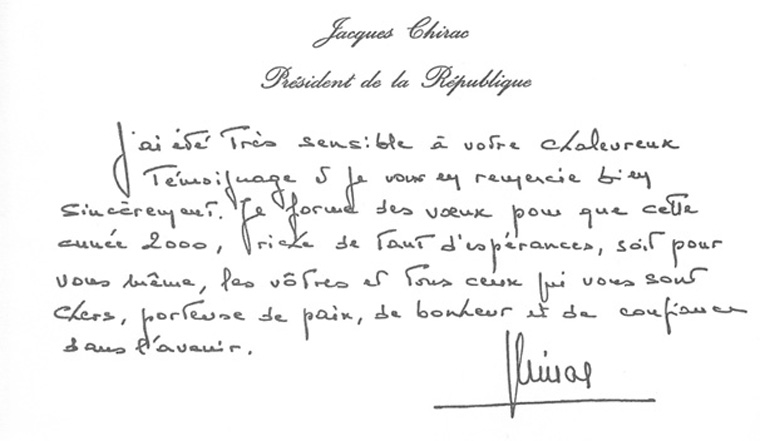 Jacques Chirac
Président de la République
J'ai été très sensible à votre chaleureux
Témoignage et je vous en remercie bien
sincèrement. Je forme des vœux pour que cette
année 2000, riche de tant d'espérances, soit pour
vous même, les vôtres et tous ceux qui vous sont
chers, porteuse de paix, de bonheur et de confiance
dans l'avenir.
Chirac